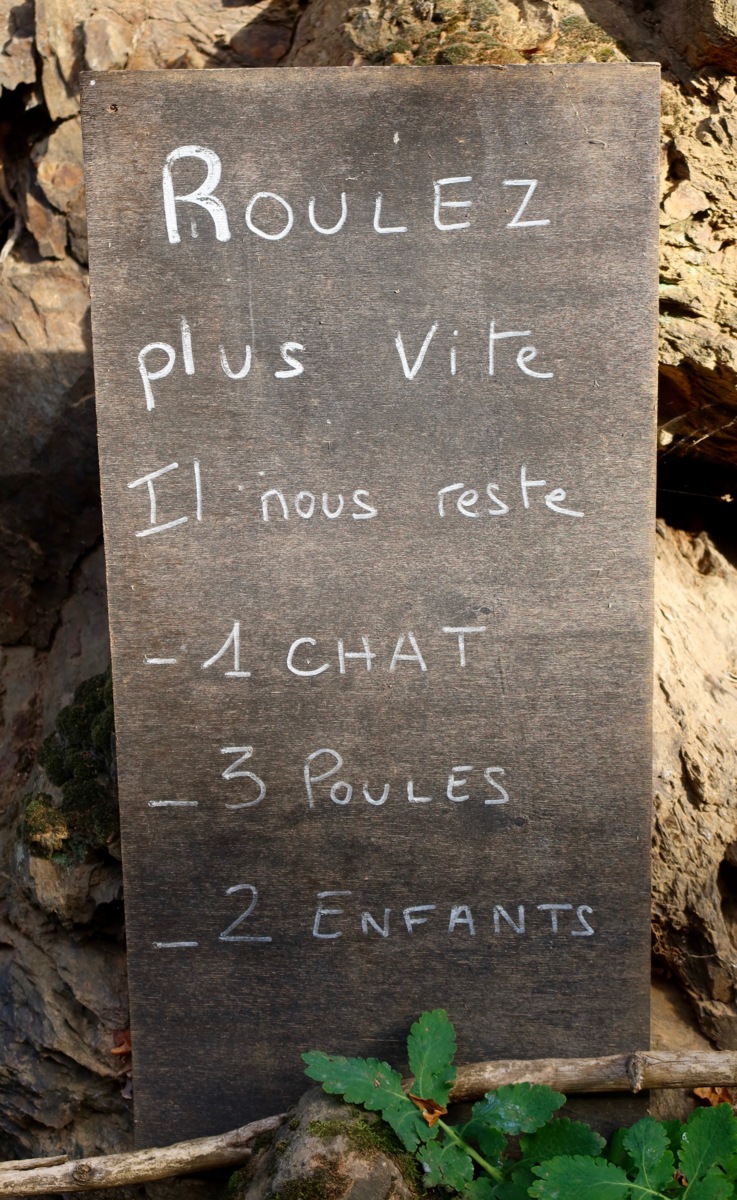 ROULEZ
plus vite
Il nous reste
- 1 CHAT
- 3 POULES
- 2 ENFANTS